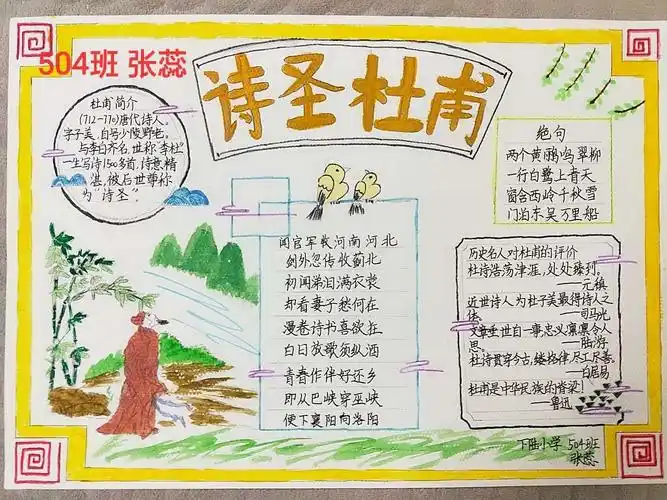 504班 张蕊
诗圣杜甫
杜甫简介
(712-770)唐代诗人,
字子美,自号少陵野老。
与李白齐名,世称"李杜"
一生写诗1500多首,诗意精
湛,被后世尊称
为"诗圣"。
绝句
两个黄鹂鸣翠柳
一行白鹭上青天
窗含西岭千秋雪
门泊东吴万里船
闻官军收河南河北
剑外忽传收蓟北
初闻涕泪满衣裳
却看妻子愁何在
漫卷诗书喜欲狂
白日放歌须纵酒
青春作伴好还乡
即从巴峡穿巫峡
便下襄阳向洛阳
历史名人对杜甫的评价
杜诗浩荡津涯,处处臻到。
——元稹
近世诗人为杜子美最得诗人之
体。 ——司马光
文章垂世自一事,忠义凛凛令人
思。 ——陆游
杜诗贯穿今古,缕格律,尽工尽善。
——白居易
杜甫是中华民族的脊梁!
鲁迅
下陆小学 504班
张蕊